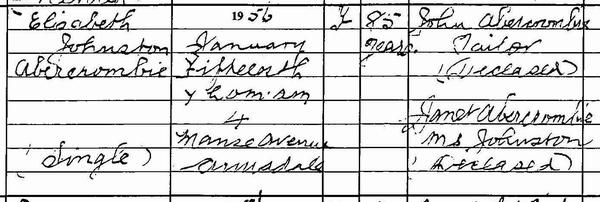 Elizabeth
Johnston
Abercrombie
(Single)
1956
January
Fifteenth
7h 40m am
4
Manse Avenue
Armadale
F
85
Years
John Abercrombie
Tailor
(Deceased)
Janet Abercrombie
M.S. Johnston
(Deceased)